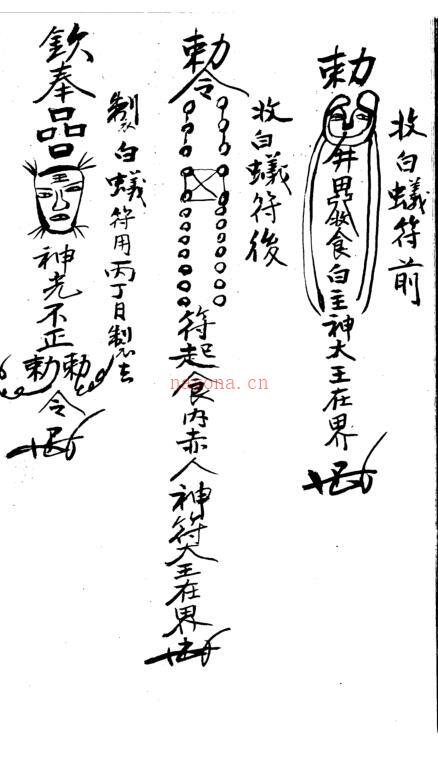 收白蟻符前
勅
食白主神大王在界
收白蟻符後
勅令
符起食内赤人神符大王在界
製白蟻符用丙丁日製
欽奉品
神光不正
勅勅
令
nayona.cn